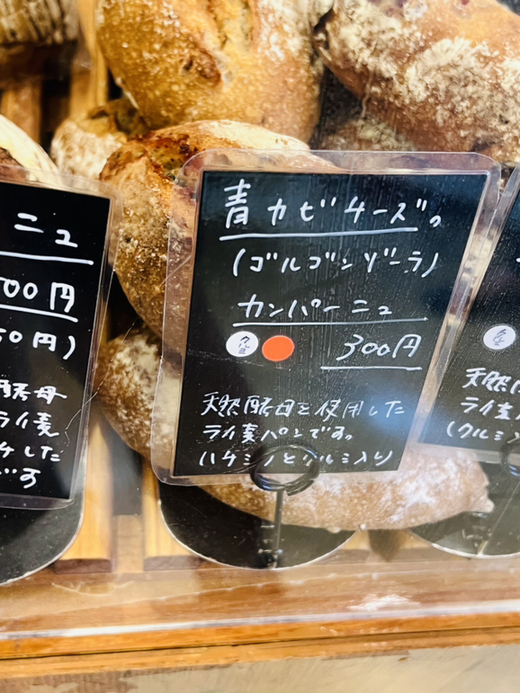 ニュ
00円
50円)
酵母
ライ麦
した
です
青カビチーズ。
(ゴルゴンゾーラ)
カンパーニュ
300円
天然酵母を使用した
ライ麦パンです。
(ハチミツとクルミ入り)
天然
ライ麦
(クルミ